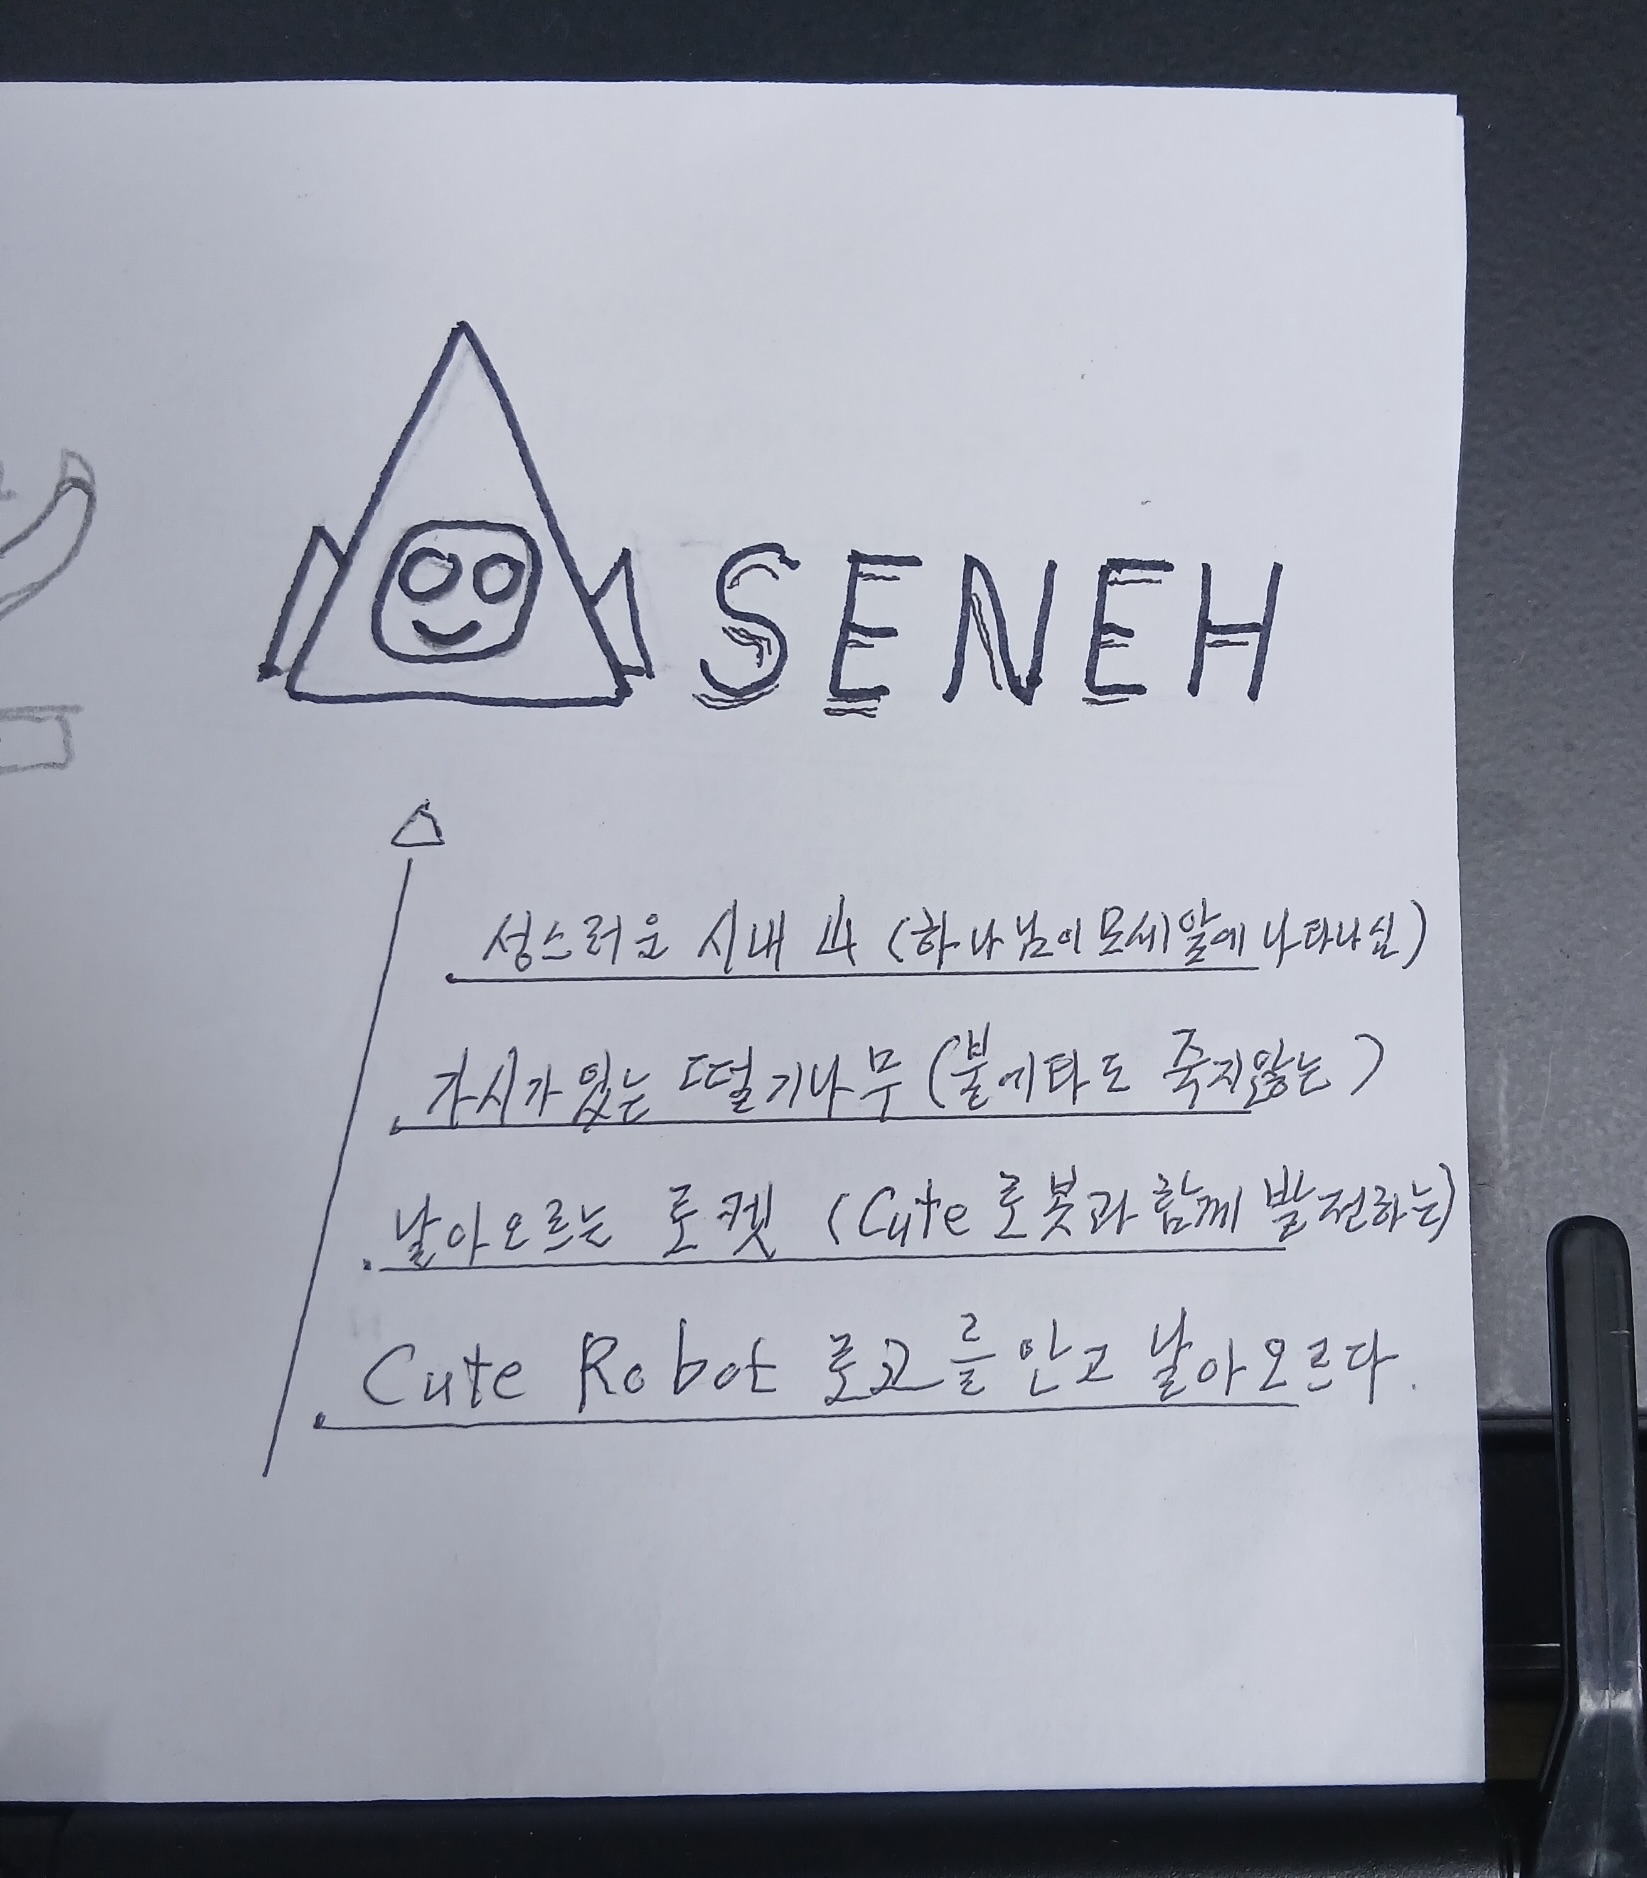 SENEH
성스러운 시내山 (하나님이 모세앞에 나타나심)
가시가 있는 떨기나무 (불에타도 죽지않는)
날아오르는 로켓 (Cute 로봇과 함께 발전하는)
Cute Robot 로고를 안고 날아오르다.